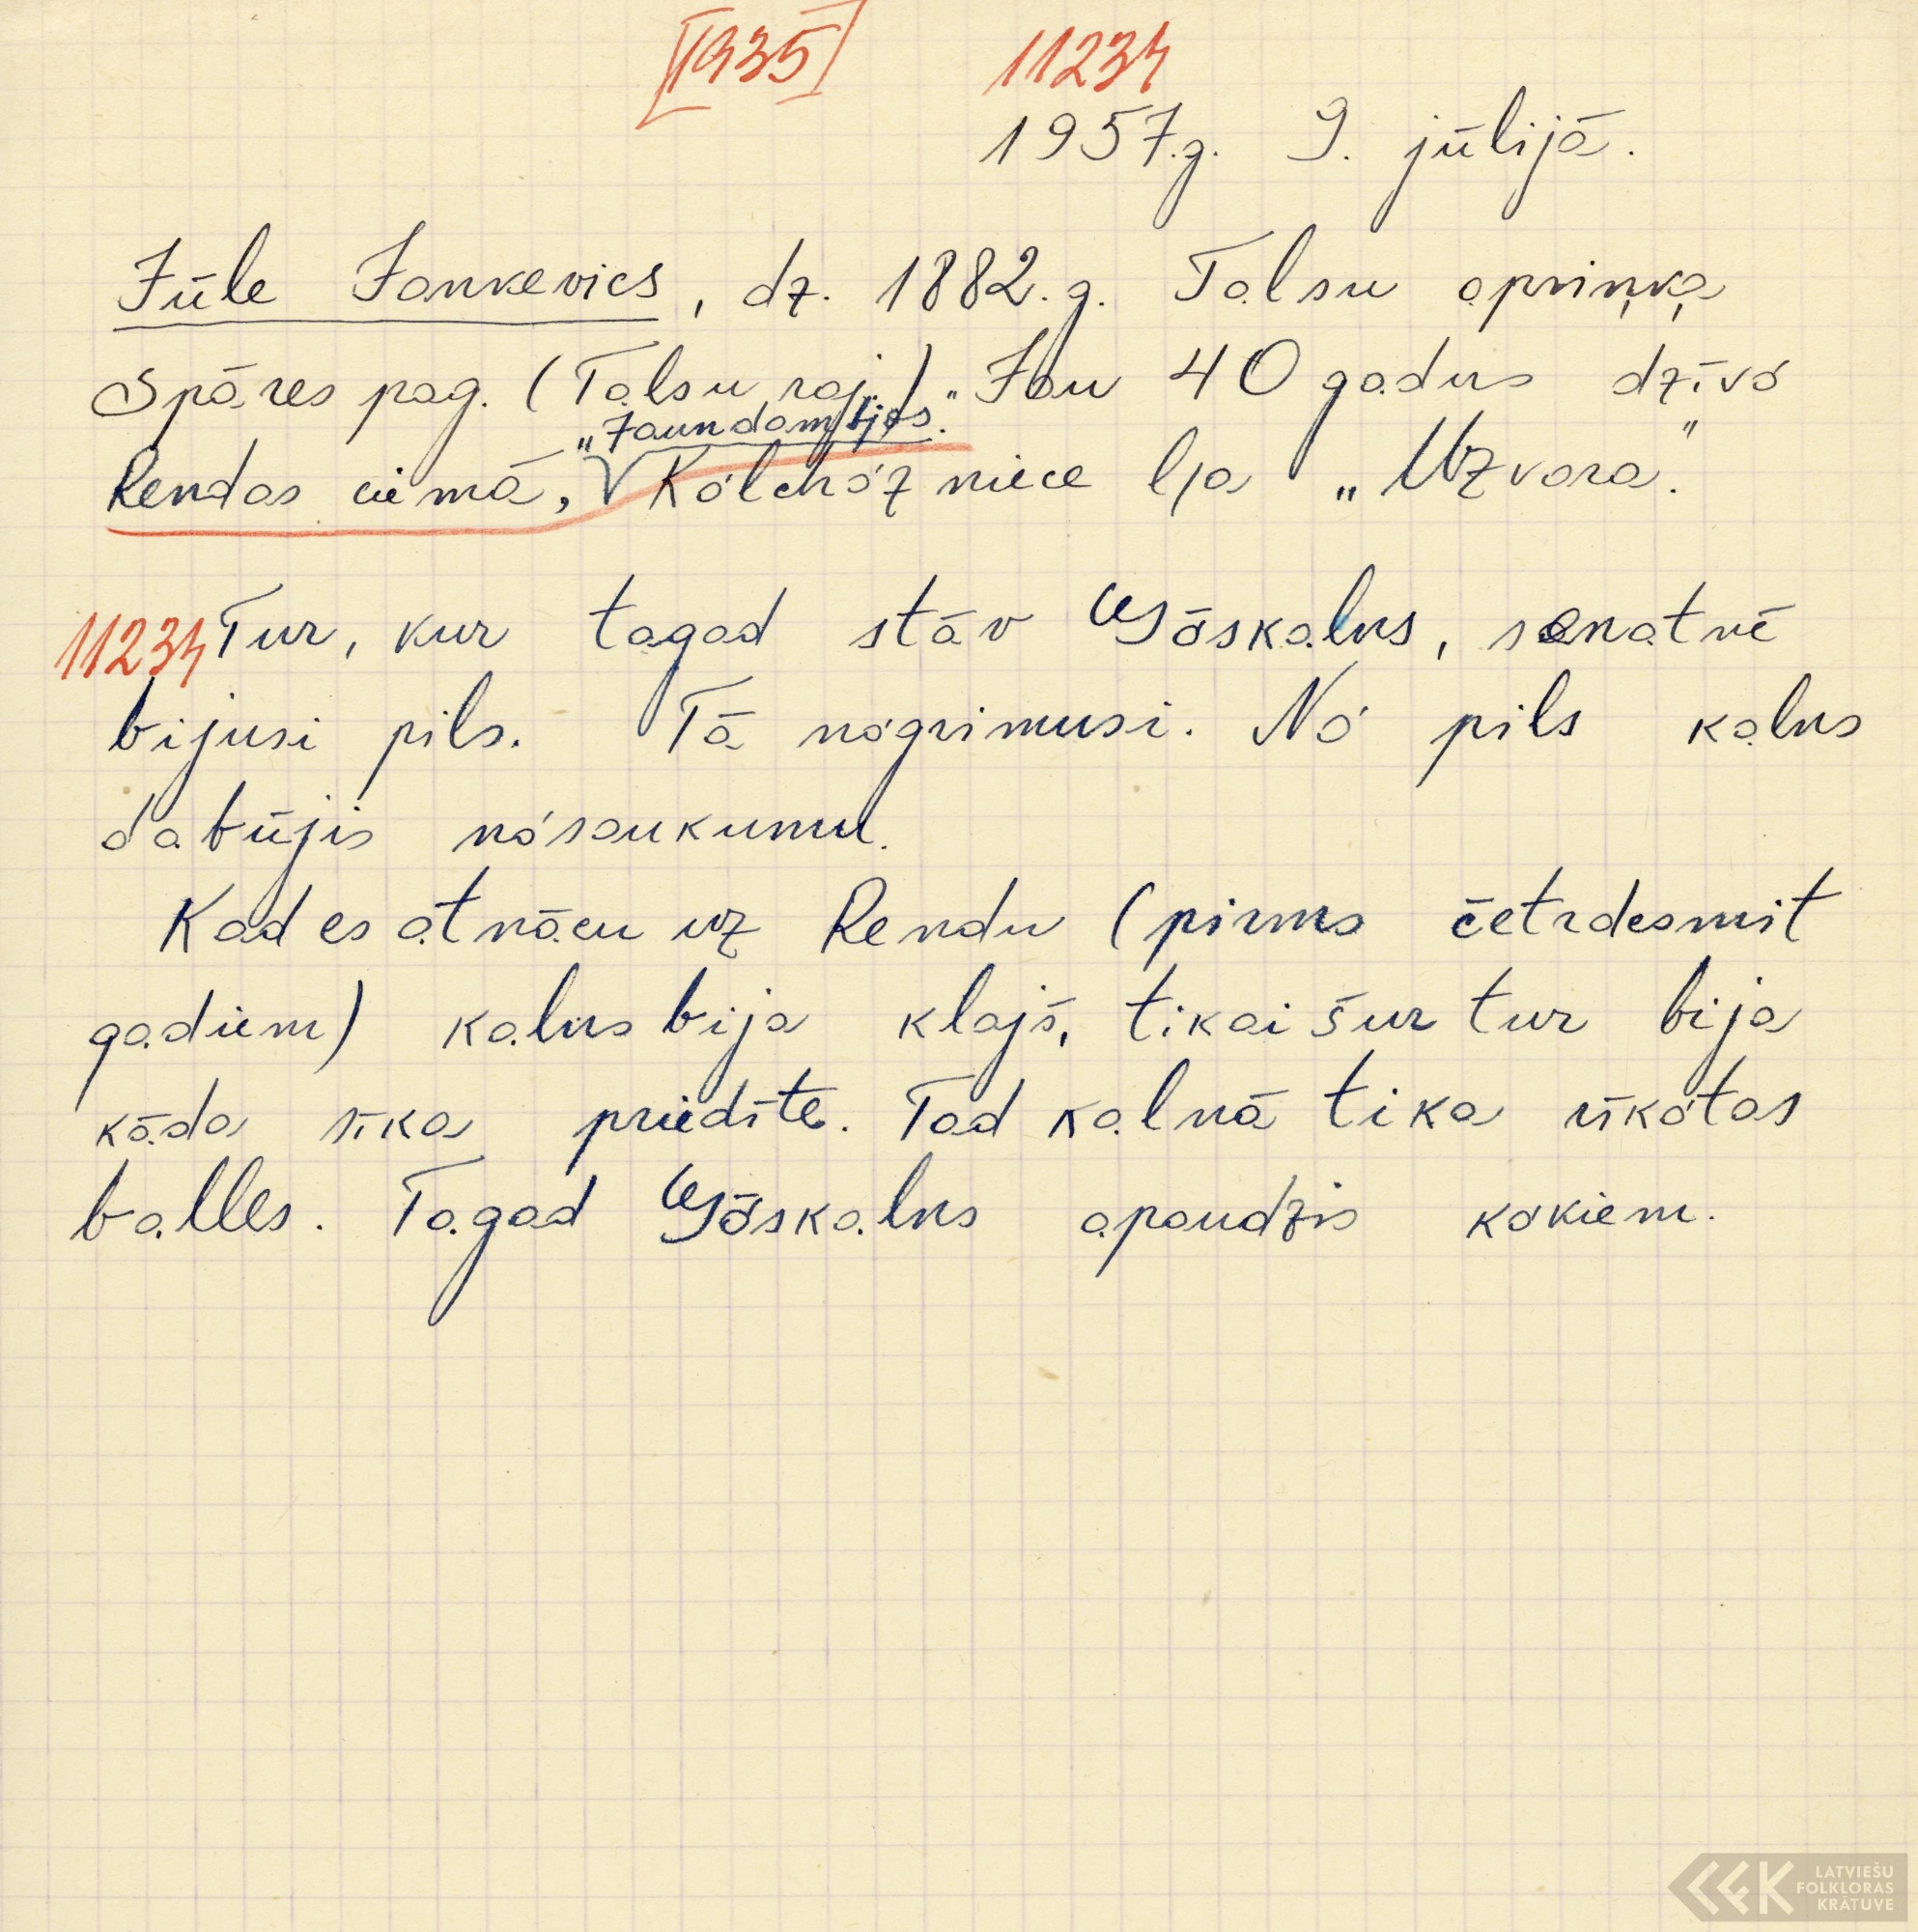 [1935] 11234
1957.g. 9. jūlijā.
Jūle Jankevics, dz. 1882.g. Talsu apriņķa
Spāres pag. (Talsu raj.). Jau 40 gadus dzīvó
"Jaundambjos."
Rendas ciemā, V Kólchózniece l/a „Uzvara."
11234 Tur, kur tagad stāv Góskalns, senatnē
bijusi pils. Tā nógrimusi. Nó pils kalns
dabūjis nósaukumu.
Kad es atnācu uz Rendu (pirms četrdesmit
gadiem) kalns bija klajš, tikai šur tur bija
kāda sīka priedīte. Tad kalnā tika rīkótas
balles. Tagad Góskalns apaudzis kókiem.
LATVIEŠU
FOLKLORAS
KRĀTUVE